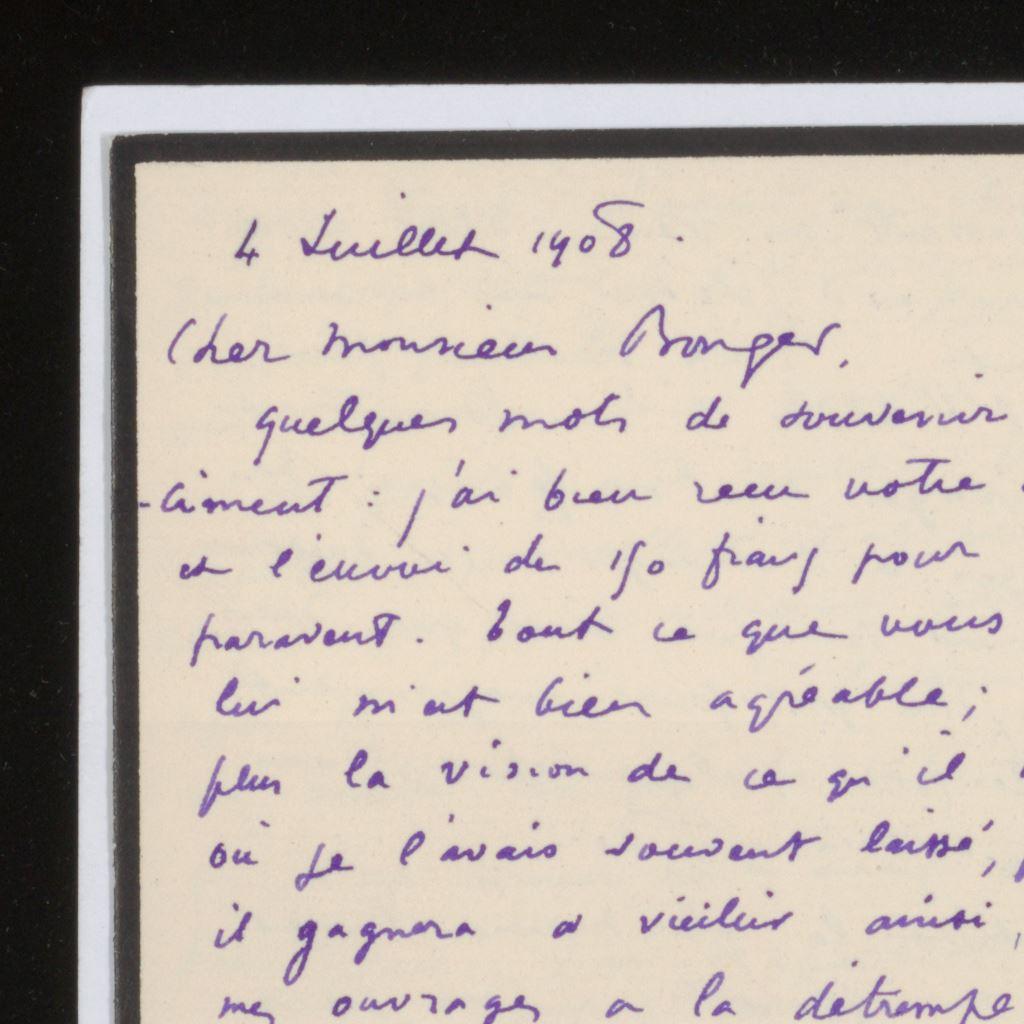 4 Juillet 1908.
Cher monsieur Bonger,
quelques mots de souvenir
-ciment : j'ai bien recu votre
et l'envoi de 150 francs pour
paravent. Tout ce que vous
lui m'est bien agréable;
plus la vision de ce qu'il
où je l'avais souvent laissé,
il gagnera a vieillir ainsi,
mes ouvrages a la détrempe